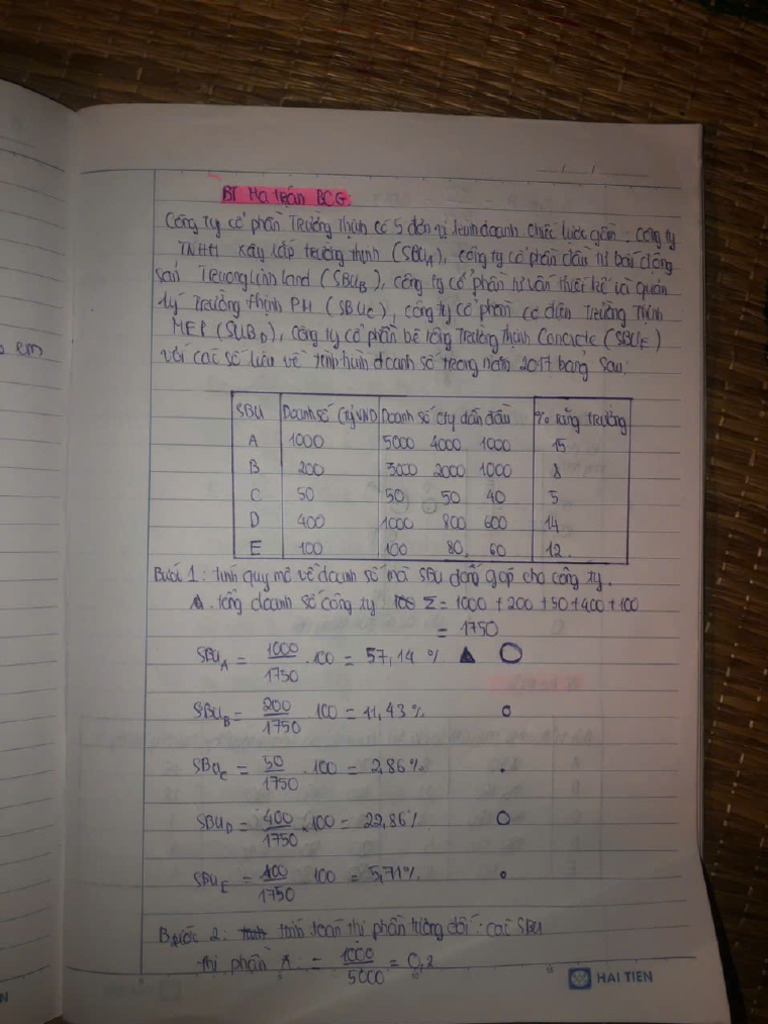 BT Ma trận BCG:
Công ty cổ phần Trường Thịnh có 5 đơn vị kinh doanh chiến lược gồm: công ty
TNHH xây lắp trường thịnh (SBU_A), công ty cổ phần đầu tư bất động
sản Truonglinhland (SBU_B), công ty cổ phần tư vấn thiết kế và quản
lý Trường thịnh PM (SBU_C), công ty cổ phần cơ điện Trường Thịnh
MEP (SUB_D), công ty cổ phần bê tông Trường Thịnh Concrete (SBU_E)
với các số liệu về tình hình doanh số trong năm 2017 bảng sau:
o em
SBU Doanh số (tỷ VND) Doanh số cty dẫn đầu % tăng trưởng
A 1000 5000 4000 1000 15
B 200 3000 2000 1000 8
C 50 50 50 40 5
D 400 1000 800 600 14
E 100 100 80 60 12.
Bước 1: tính quy mô về doanh số mỗi SBU đóng góp cho công ty.
. tổng doanh số công ty Σ = 1000 + 200 + 50 + 400 + 100
= 1750
SBU_A = 1000/1750 . 100 = 57,14 %
SBU_B = 200/1750 . 100 = 11,43 %
SBU_C = 50/1750 . 100 = 2,86 %
SBU_D = 400/1750 . 100 = 22,86 %
SBU_E = 100/1750 . 100 = 5,71 %
Bước 2: tính toán thị phần tương đối: các SBU
thị phần A = 1000/5000 = 0,2
HAI TIEN